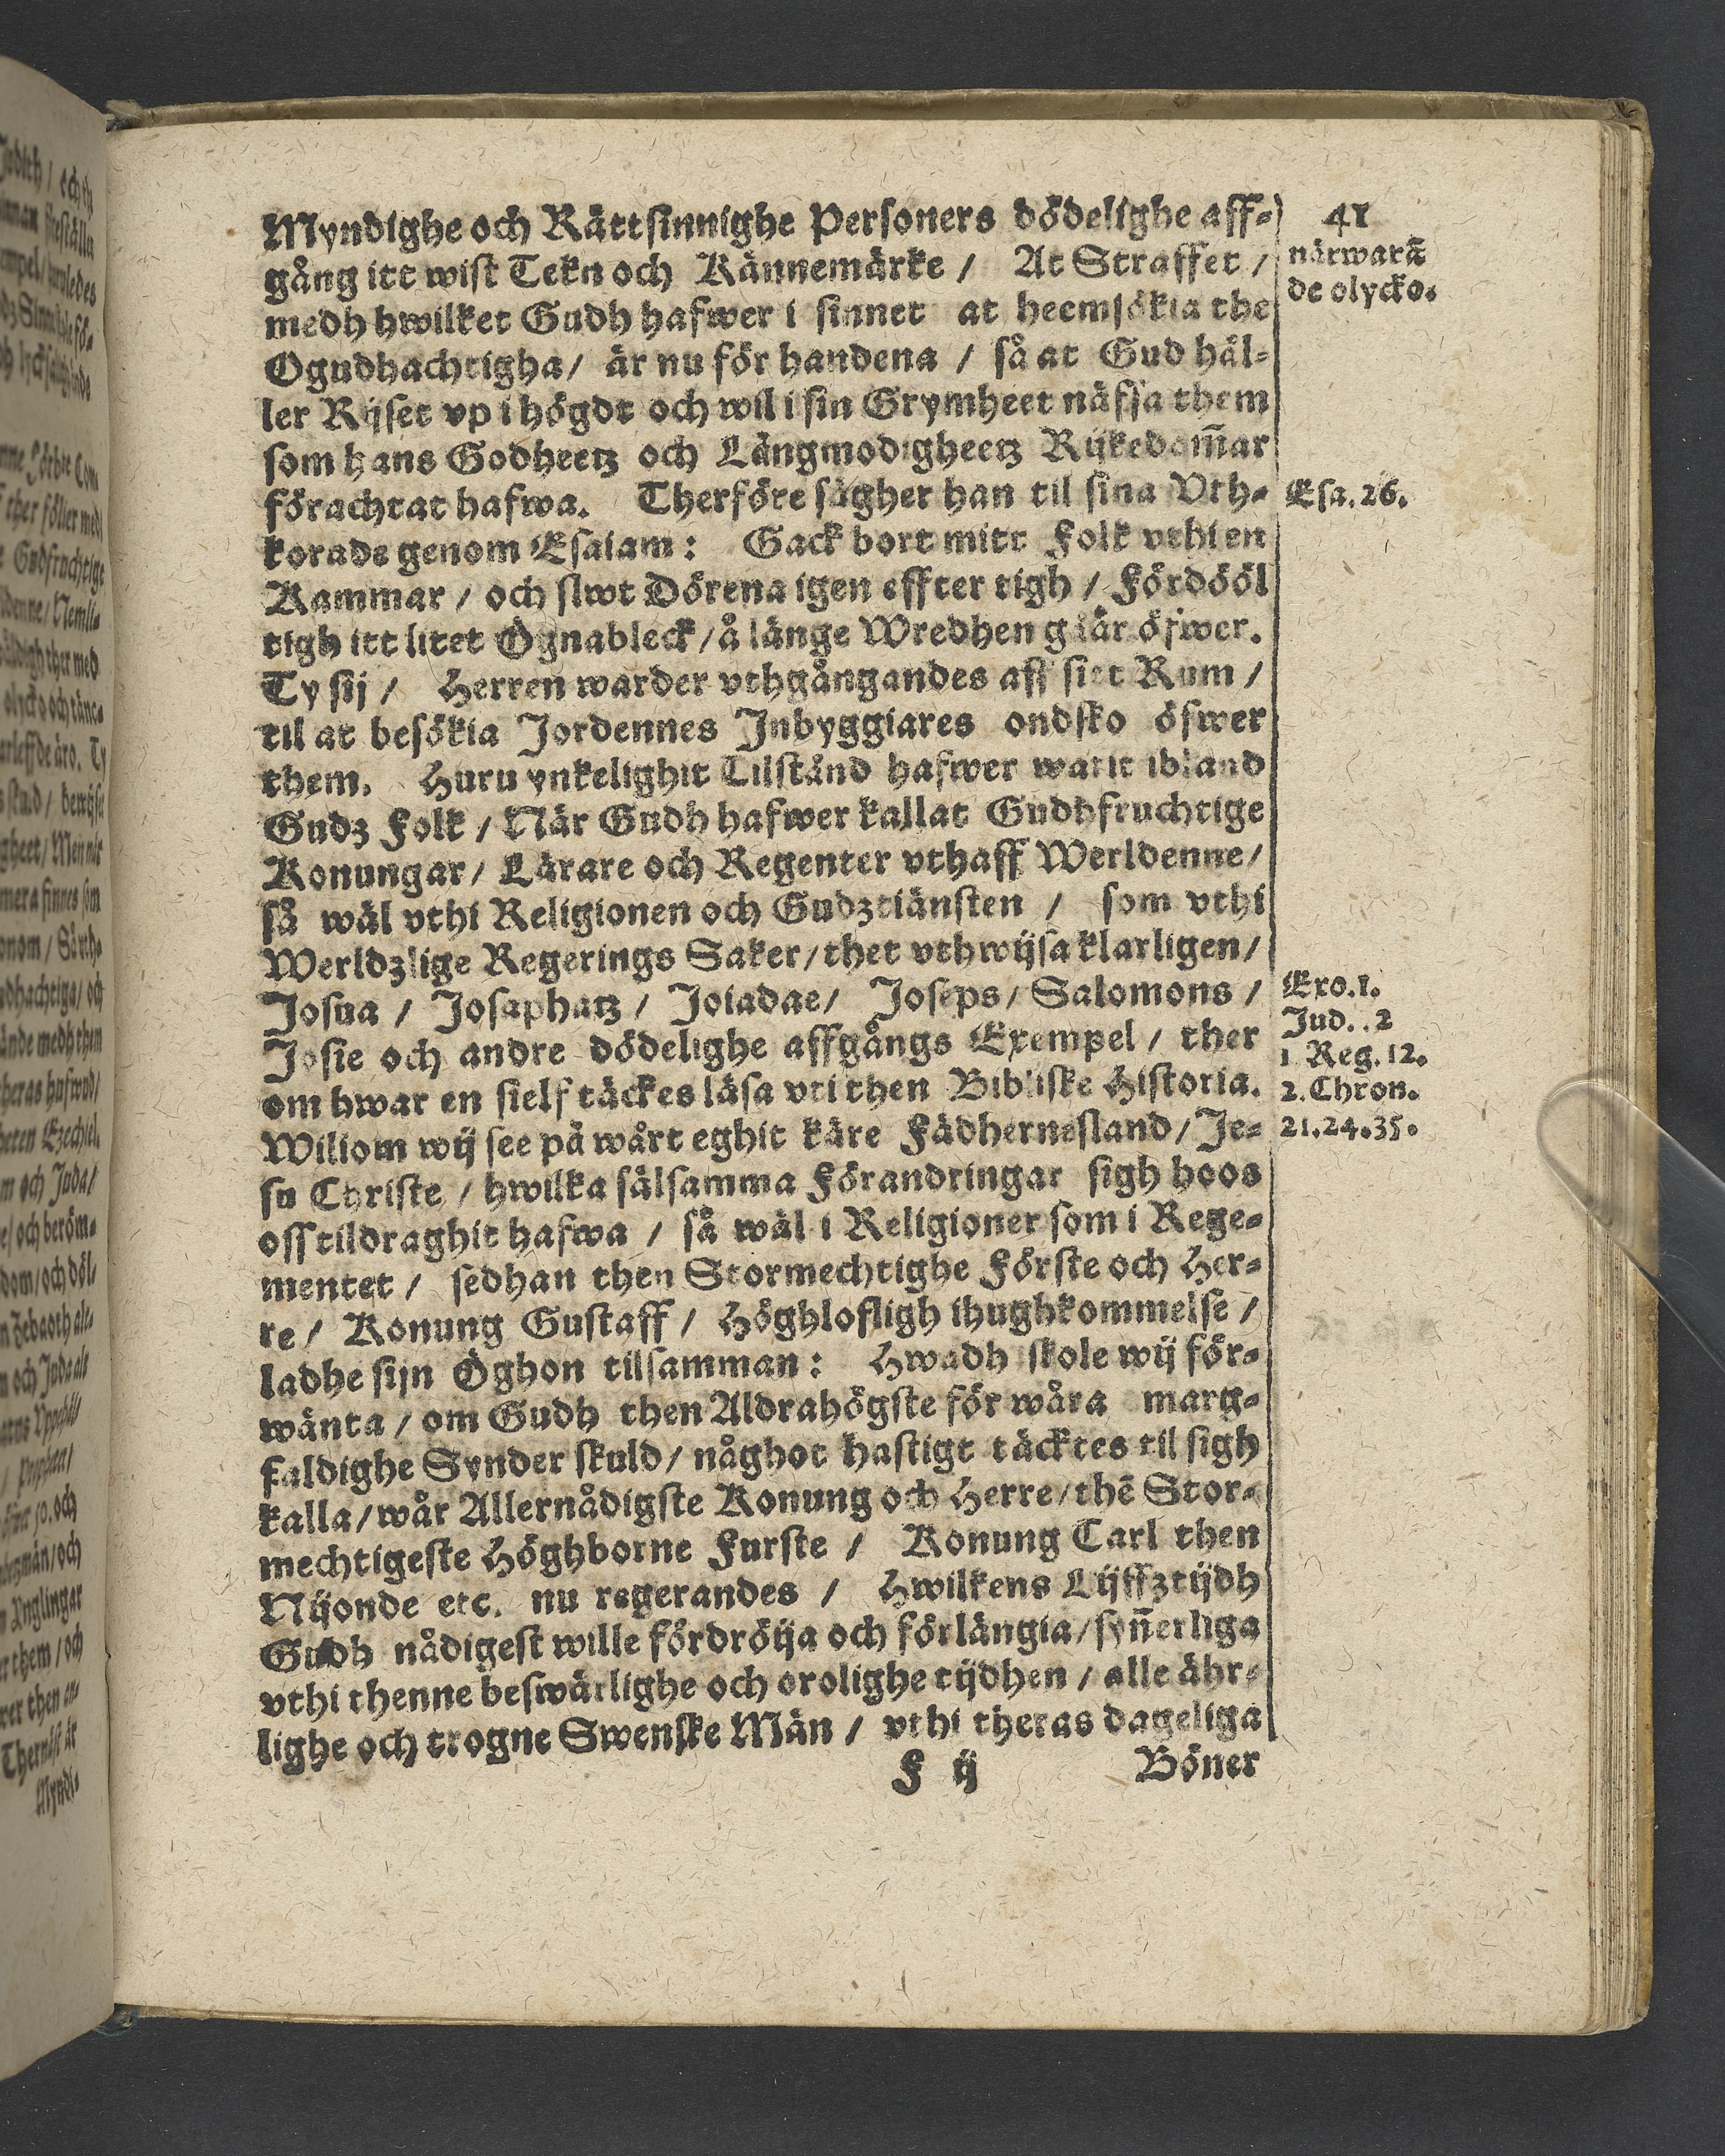 41
Myndighe och Rättsinnighe Personers dödelighe aff⸗
gång itt wist Tekn och Kännemärke / At Straffet /
medh hwilket Gudh hafwer i sinnet at heemsökia the
Ogudhachtigha / är nu för handena / så at Gud häl⸗
ler Rijset vp i högdt och wil i sin Grymheet näfsa them
som hans Godheetz och Långmodigheetz Rijkedom̄ar
förachtat hafwa. Therföre sägher han til sina Vth⸗
korade genom Esaiam: Gack bort mitt Folk vthi en
Kammar / och slwt Dörena igen effter tigh / Fördööl
tigh itt litet Ögnableck / å länge Wredhen gåär öfwer.
Ty sij / Herren warder vthgångandes aff sitt Rum /
til at besökia Jordennes Jnbyggiares ondsko öfwer
them. Huru ynkelighit Tilstånd hafwer warit ibland
Gudz Folk / När Gudh hafwer kallat Gudhfruchtige
Konungar / Lärare och Regenter vthaff Werldenne /
så wäl vthi Religionen och Gudztiänsten / som vthi
Werldzlige Regerings Saker / thet vthwijsa klarligen /
Josua / Josaphatz / Joiadae / Joseps / Salomons /
Josie och andre dödelighe affgångs Exempel / ther
om hwar en sielf täckes läsa vti then Bibliske Historia.
Wiliom wij see på wårt eghit käre Fädhernesland / Je⸗
su Christe / hwilka sälsamma Förandringar sigh hoos
oss tildraghit hafwa / så wäl i Religioner som i Rege⸗
mentet / sedhan then Stormechtighe Förste och Her⸗
re / Konung Gustaff / Höghlofligh ihughkommelse /
ladhe sijn Öghon tilsamman: Hwadh skole wij för⸗
wänta / om Gudh then Aldrahögste för wåra marg⸗
faldighe Synder skuld / någhot hastigt täcktes til sigh
kalla / wår Allernådigste Konung och Herre / thē Stor⸗
mechtigeste Höghborne Furste / Konung Carl then
Nijonde etc. nu regerandes / Hwilkens Lijffztijdh
Gudh nådigest wille fördröija och förlängia / syn̄erliga
vthi thenne beswärlighe och orolighe tijdhen / alle ähr⸗
lighe och trogne Swenske Män / vthi theras dageliga
F ij Böner
närwarā
de olycko.
Esa. 26.
Exo. 1.
Jud. . 2
1 Reg. 12.
2. Chron.
21. 24. 35.